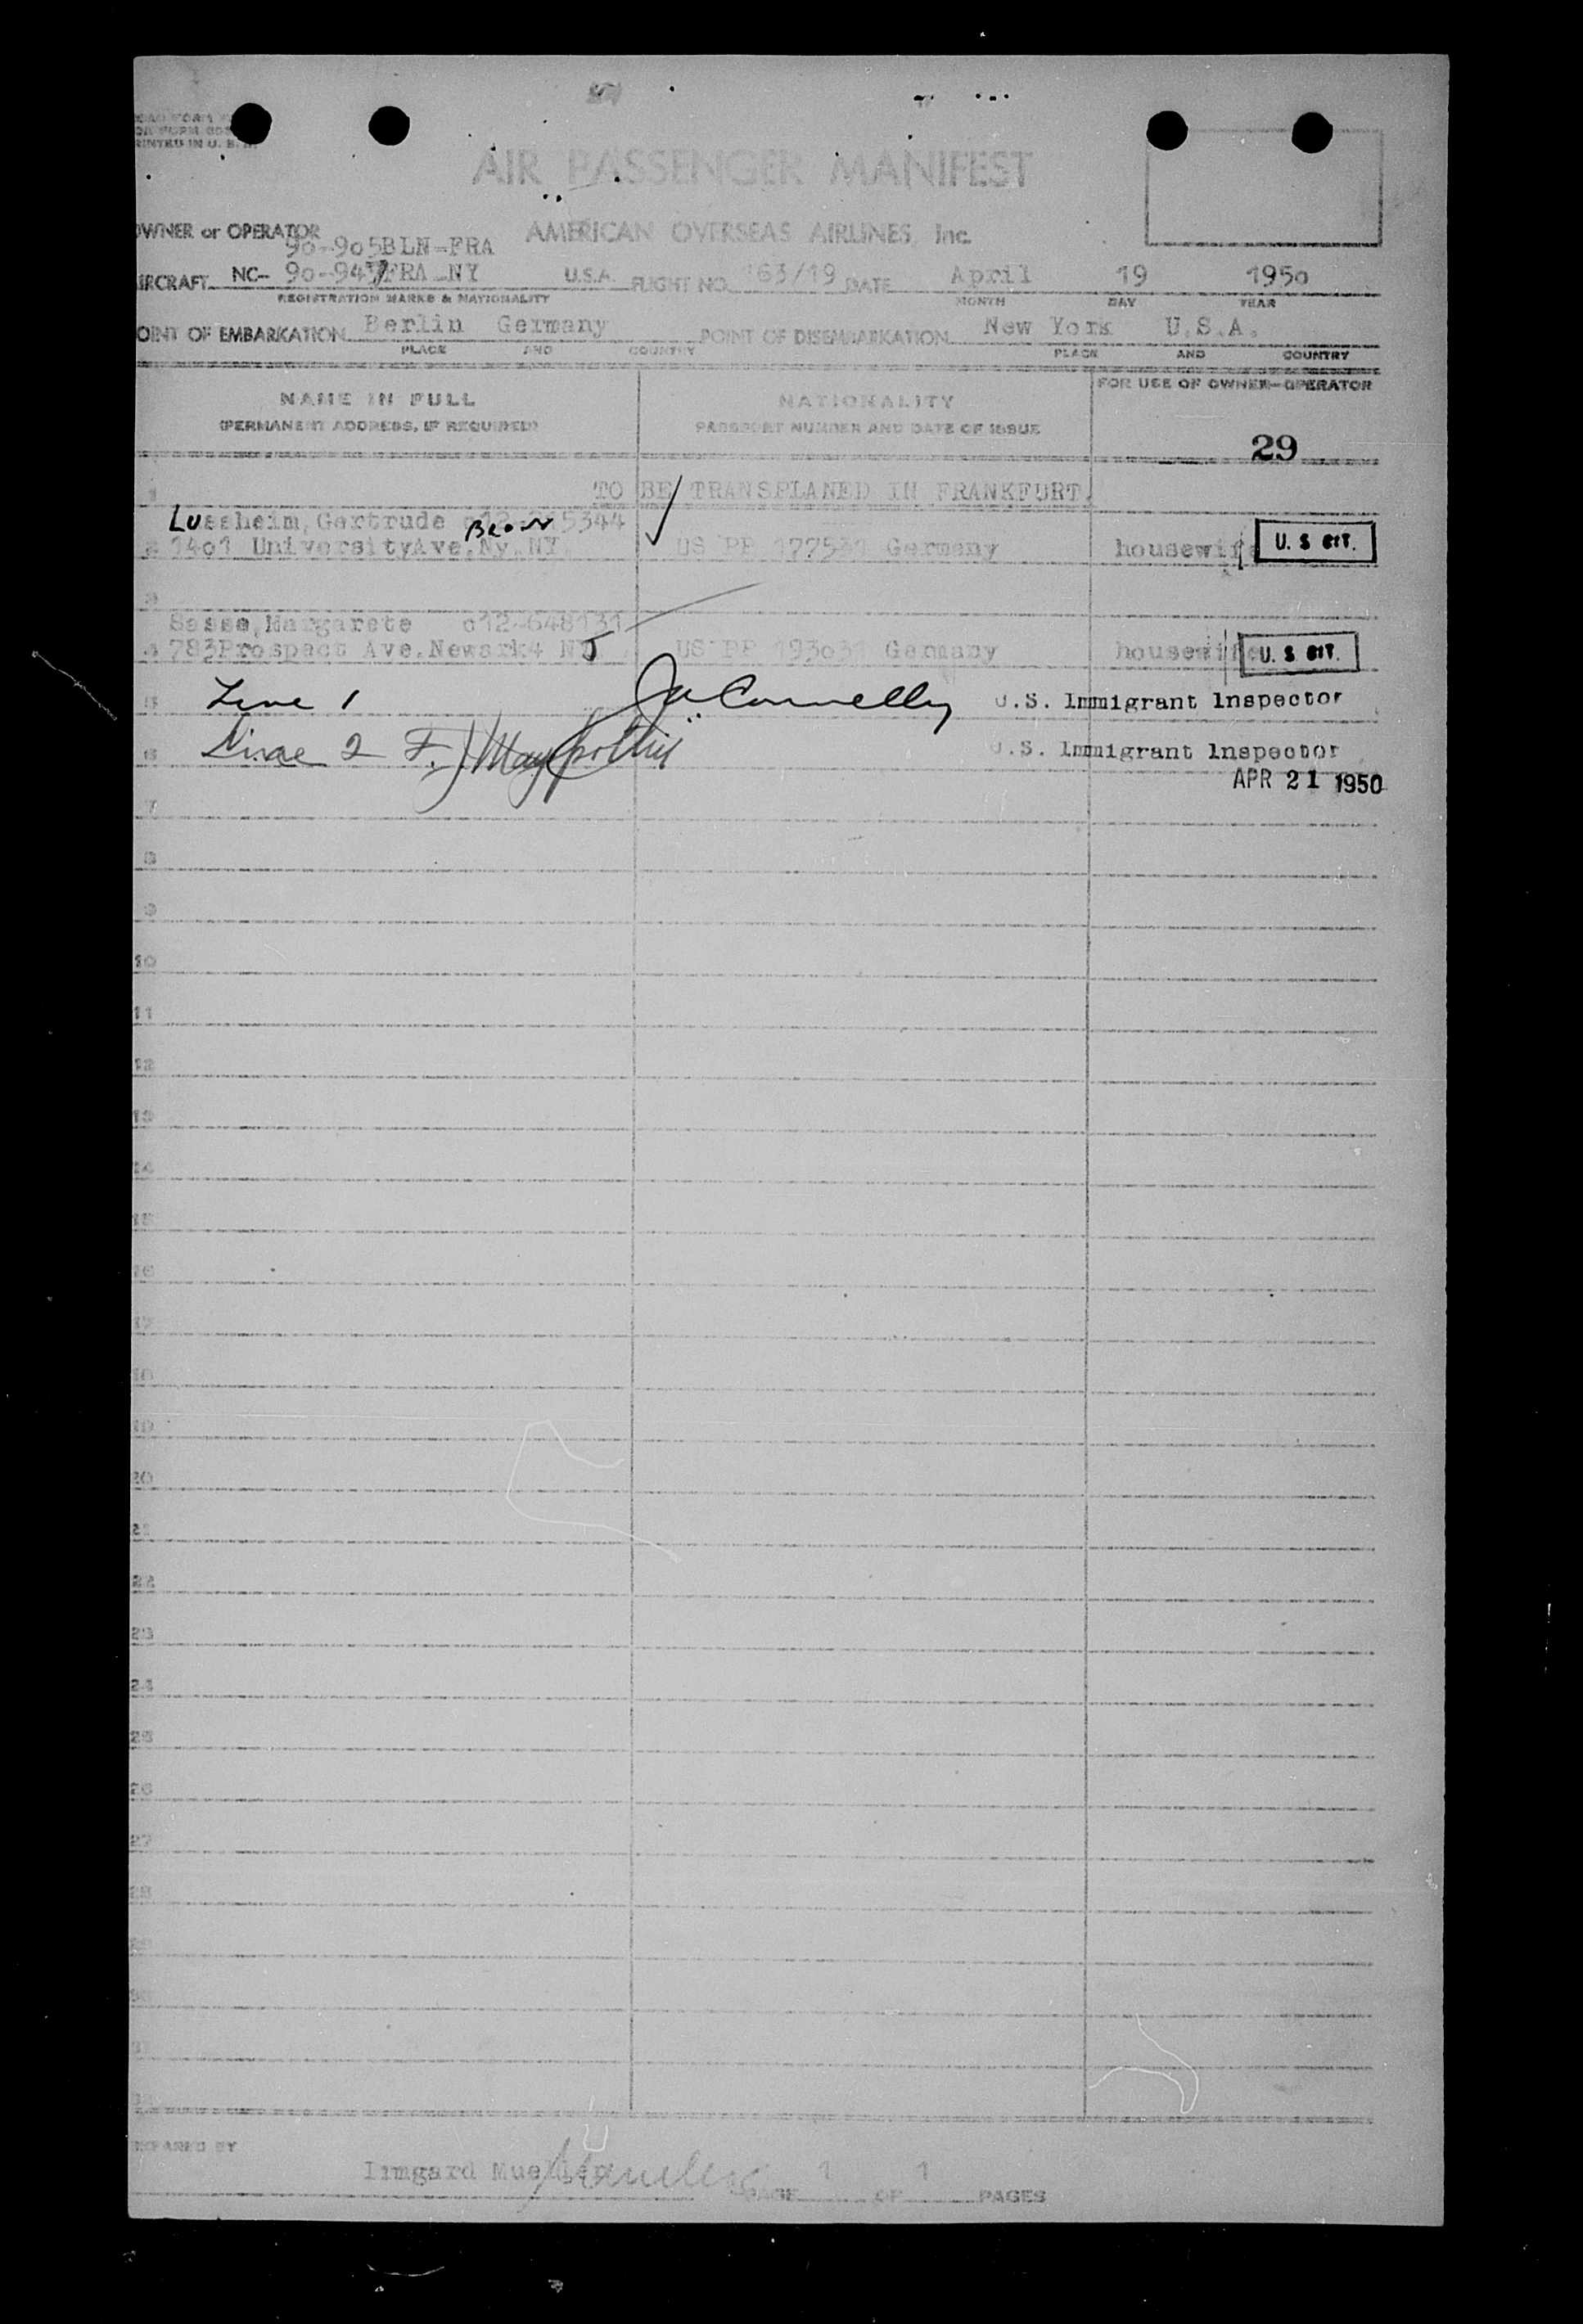 PRINTED IN U. S. A.
AIR PASSENGER MANIFEST
OWNER or OPERATOR AMERICAN OVERSEAS AIRLINES, Inc.
9o-9o5BLN-FRA
AIRCRAFT NC- 9o-947FRA-NY U.S.A. FLIGHT NO. 163/19 DATE April 19 195o
REGISTRATION MARKS & NATIONALITY MONTH DAY YEAR
POINT OF EMBARKATION Berlin Germany POINT OF DISEMBARKATION New York U.S.A.
PLACE AND COUNTRY PLACE AND COUNTRY
NAME IN FULL NATIONALITY FOR USE OF OWNER-OPERATOR
(PERMANENT ADDRESS, IF REQUIRED) PASSPORT NUMBER AND DATE OF ISSUE
29
1 TO BE TRANSPLANED IN FRANKFURT.
Lussheim, Gertrude 5344
2 14o1 UniversityAve.Ny.NY. Bronx US PP Germany housewife U. S CIT.
3
Sasse,Margarete o12-648131
4 783Prospect Ave.Newark4 NJ US PP 193o31 Germany housewife U. S CIT.
5 Line 1 J Connelly U.S. Immigrant Inspector
6 Line 2 U.S. Immigrant Inspector
APR 21 1950
7
8
9
10
11
12
13
14
15
16
17
18
19
20
21
22
23
24
25
26
27
28
29
30
31
32
PREPARED BY
Irmgard Mueller PAGE 1 OF 1 PAGES